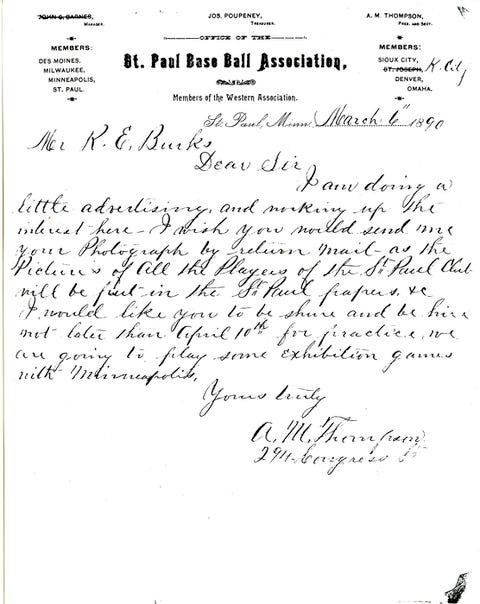 JOHN G. BARNES, JOS. POUPENEY, A. M. THOMPSON,
MANAGER. TREASURER. PRES. AND SECY.
OFFICE OF THE
MEMBERS: MEMBERS:
St. Paul Base Ball Association,
DES MOINES, SIOUX CITY,
MILWAUKEE, ST. JOSEPH, K. City
MINNEAPOLIS, DENVER,
ST. PAUL. OMAHA.
Members of the Western Association.
St. Paul, Minn. March 6" 1890
Mr K. E. Burks
Dear Sir
I am doing a
little advertising, and working up the
interest here - I wish you would send me
your Photograph by return mail - as the
Pictures of all the Players of the St Paul Club
will be put in the St Paul papers, &c
I would like you to be shure and be hire
not later than April 10th for practice, we
are going to play some exhibition games
with Minneapolis,
Yours truly
A. M. Thompson
Congress St